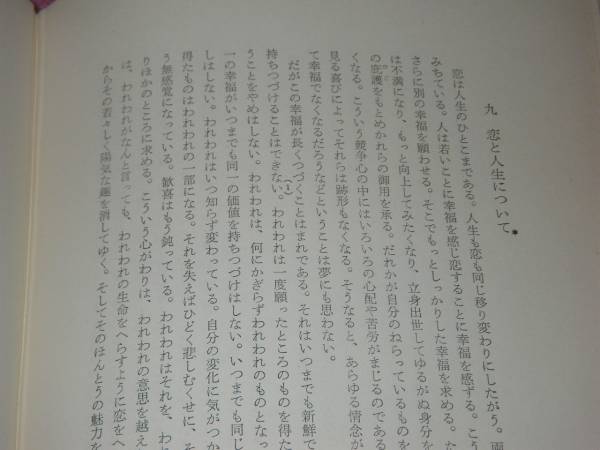 九 恋と人生について*
恋は人生のひとこまである。人生も恋も同じ移り変わりにしたがう。両
みちている。人は若いことに幸福を感じ恋することに幸福を感ずる。こう
さらに別の幸福を願わせる。そこでもっとしっかりした幸福を求める。た
は不満になり、もっと向上してみたくなり、立身出世してゆるがぬ身分を
の庇護をもとめかれらの御用を承る。だれかが自分のねらっているものを
くなる。こういう競争心の中にはいろいろの心配や苦労がまじるのである
見る喜びによってそれらは跡形もなくなる。そうなると、あらゆる情念が
て幸福でなくなるだろうなどということは夢にも思わない。
だがこの幸福が長くつづくことはまれである。それはいつまでも新鮮で
持ちつづけることはできない。(1)われわれは一度願ったところのものを得た
うことをやめはしない。われわれは、何にかぎらずわれわれのものとなっ
一の幸福がいつまでも同一の価値を持ちつづけはしない。いつまでも同じ
しはしない。われわれはいつ知らず変わっている。自分の変化に気がつか
得たものはわれわれの一部になる。それを失えばひどく悲しむくせに、そ
う無感覚になっている。歓喜はもう鈍っている。われわれはそれを、われ
りほかのところに求める。こういう心がわりは、われわれの意思を越え
は、われわれがなんと言っても、われわれの生命をへらすように恋をへ
からその若々しく陽気な趣を消してゆく。そしてそのほんとうの魅力を